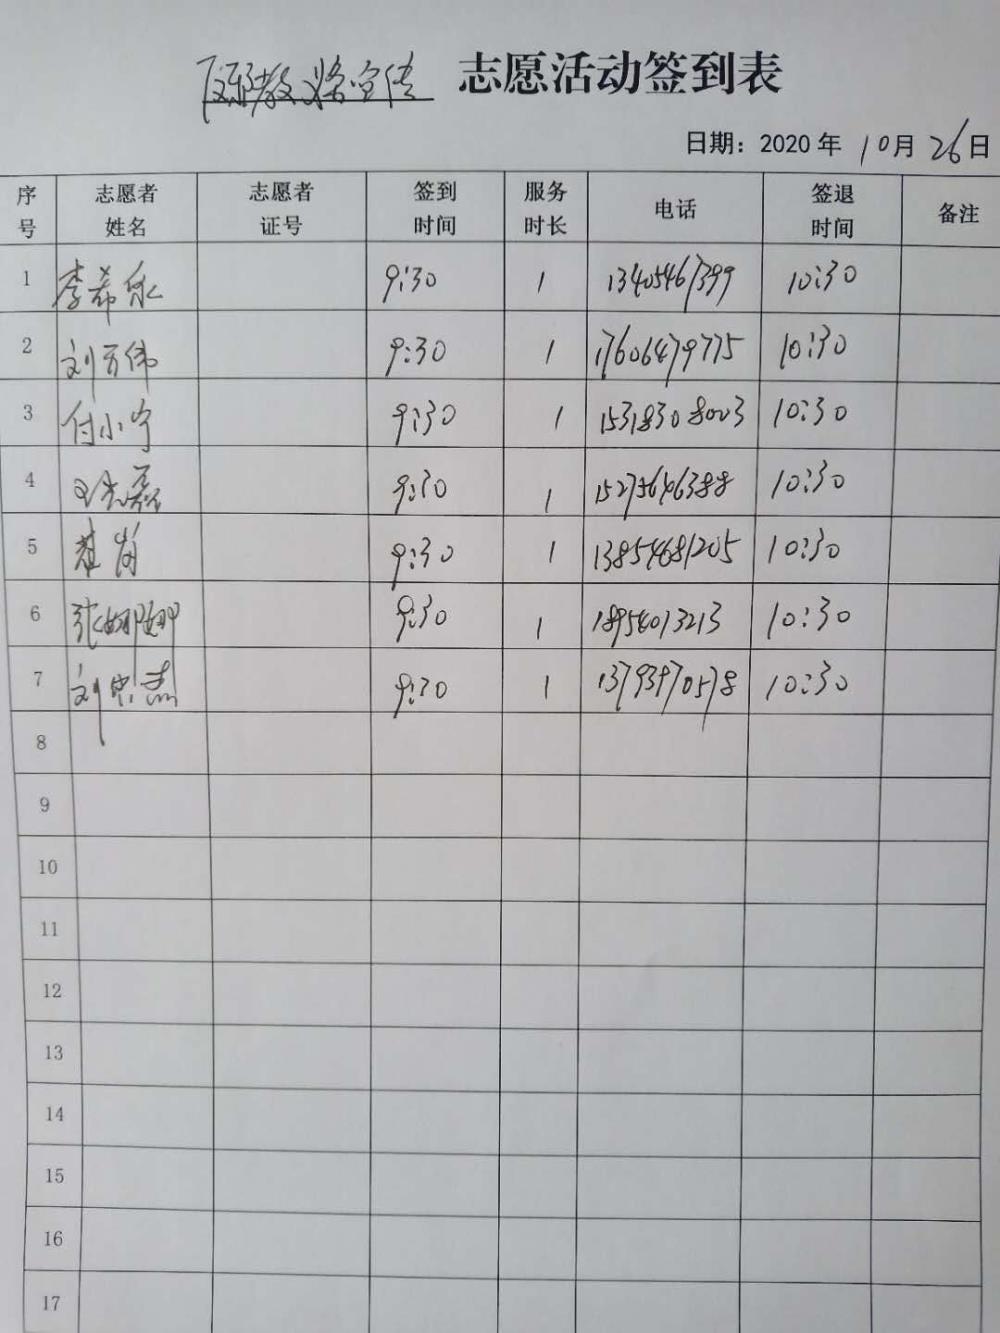 反邪教 宣传 志愿活动签到表
日期：2020 年 10月 26日
序号 志愿者姓名 志愿者证号 签到时间 服务时长 电话 签退时间 备注
1 李希永 9:30 1 13405467399 10:30
2 刘万伟 9:30 1 17606479775 10:30
3 付小宁 9:30 1 15318308003 10:30
4 9:30 1 10:30
5 9:30 1 13854681205 10:30
6 张娜娜 9:30 1 18954013213 10:30
7 刘忠 9:30 1 13793970578 10:30
8
9
10
11
12
13
14
15
16
17